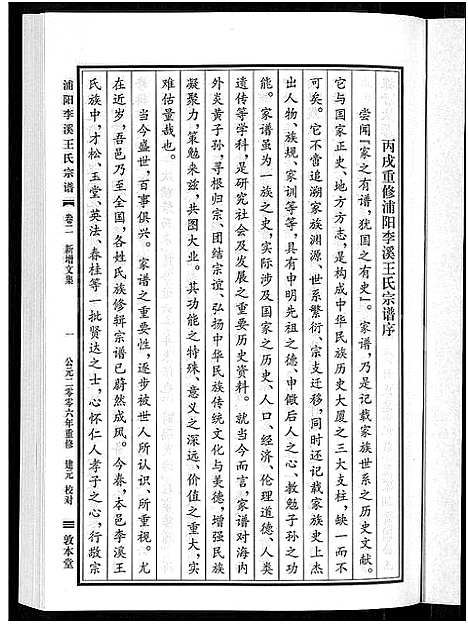 丙戌重修浦阳李溪王氏宗谱序
尝闻『家之有谱，犹国之有史』。家谱，乃是记载家族世系之历史文献。
它与国家正史、地方方志，是构成中华民族历史大厦之三大支柱，缺一而不
可矣。它不啻追溯家族渊源、世系繁衍、宗支迁移，同时还记载家族史上杰
出人物、族规、家训等等，具有申明先祖之德、申儆后人之心、教勉子孙之功
能。家谱虽为一族之史，实际涉及国家之历史、人口、经济、伦理道德、人类
遗传等学科，是研究社会及发展之重要历史资料。就当今而言，家谱对海内
外炎黄子孙，寻根归宗、团结宗谊、弘扬中华民族传统文化与美德，增强民族
凝聚力，策勉来兹，共图大业。其功能之特殊、意义之深远、价值之重大，实
难估量哉也。
当今盛世，百事俱兴。家谱之重要性，逐步被世人所认识、所重视。尤
在近岁，吾邑乃至全国，各姓氏族修辑宗谱已蔚然成风。今春，本邑李溪王
氏族中，才松、玉堂、英法、春桂等一批贤达之士，心怀仁人孝子之心，行敬宗
浦阳李溪王氏宗谱 卷二 新增文集 一 公元二零零六年重修 建元 校对 敦本堂